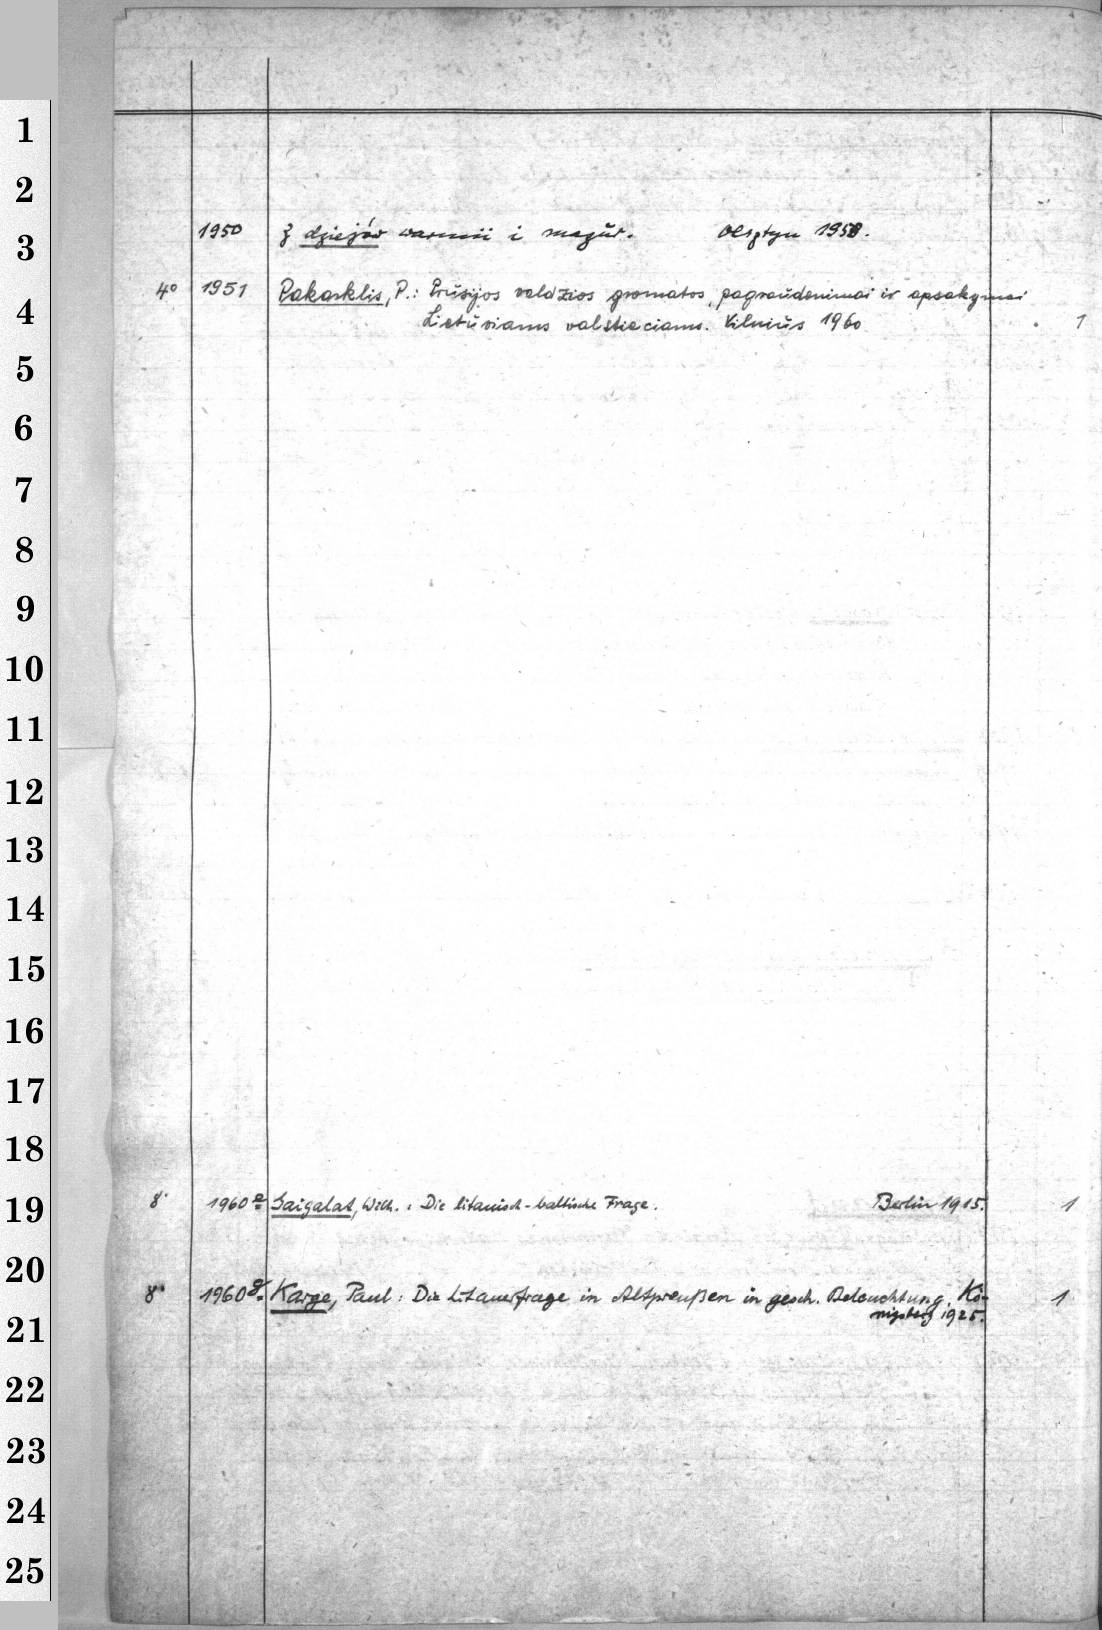 1
2
3
4
5
6
7
8
9
10
11
12
13
14
15
16
17
18
19
20
21
22
23
24
25
1950 Z dziejów warmii i mazur. Olsztyn 1958.
4° 1951 Pakarklis, P.: Prūsijos valdžios gromatos, pagraudenimai ir apsakymai
Lietūviams valstieciams. Vilniūs 1960 1
8° 1960 e Gaigalat, Wilh.: Die litauisch-baltische Frage. Berlin 1915. 1
8° 1960 g Karge, Paul: Die Litauerfrage in Altpreußen in gesch. Beleuchtung. Kö-
nigsberg 1925. 1